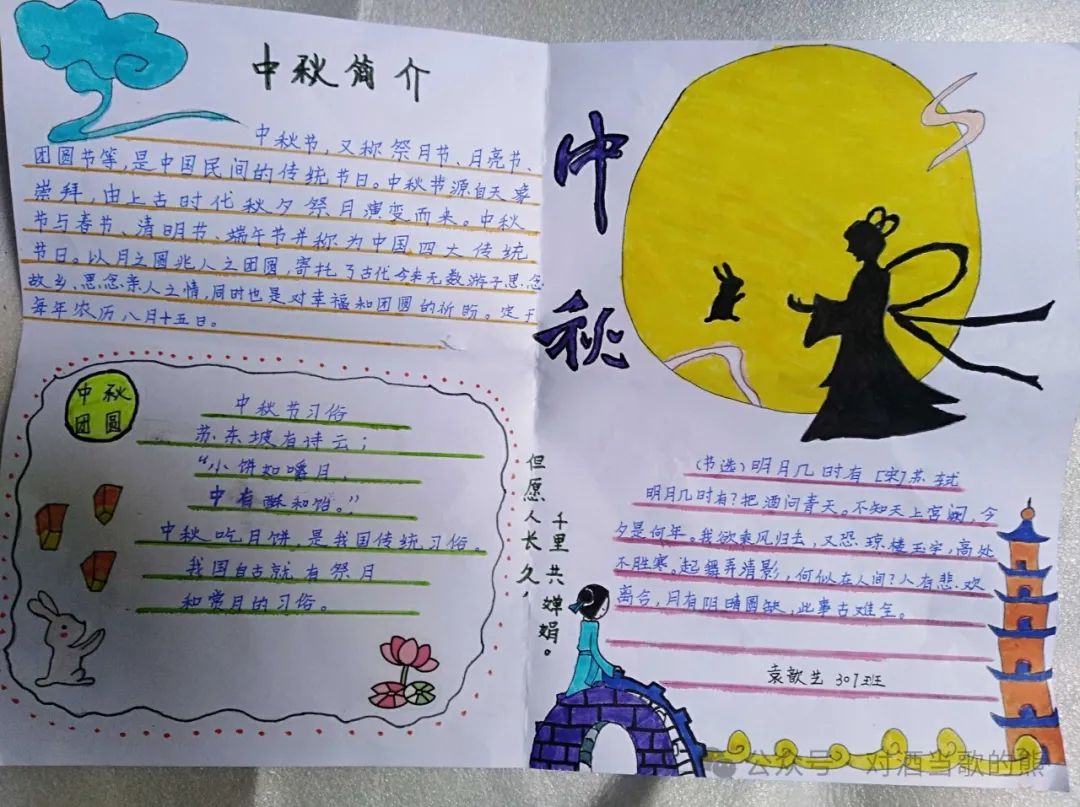 中秋简介
中秋节，又称祭月节、月亮节、
团圆节等，是中国民间的传统节日。中秋节源自天象
崇拜，由上古时代秋夕祭月演变而来。中秋
节与春节、清明节、端午节并称为中国四大传统
节日。以月之圆兆人之团圆，寄托了古代今来无数游子思念
故乡、思念亲人之情，同时也是对幸福和团圆的祈盼。定于
每年农历八月十五日。
中秋
团圆
中秋节习俗
苏东坡有诗云；
“小饼如嚼月，
中有酥和饴。”
中秋吃月饼，是我国传统习俗。
我国自古就有祭月
和赏月的习俗。
中秋
但愿人长久，
千里共婵娟。
（节选）明月几时有 [宋]苏轼
明月几时有？把酒问青天。不知天上宫阙，今
夕是何年。我欲乘风归去，又恐琼楼玉宇，高处
不胜寒。起舞弄清影，何似在人间？人有悲欢
离合，月有阴晴圆缺，此事古难全。
袁歆艺 301班
公众号·对酒当歌的熊